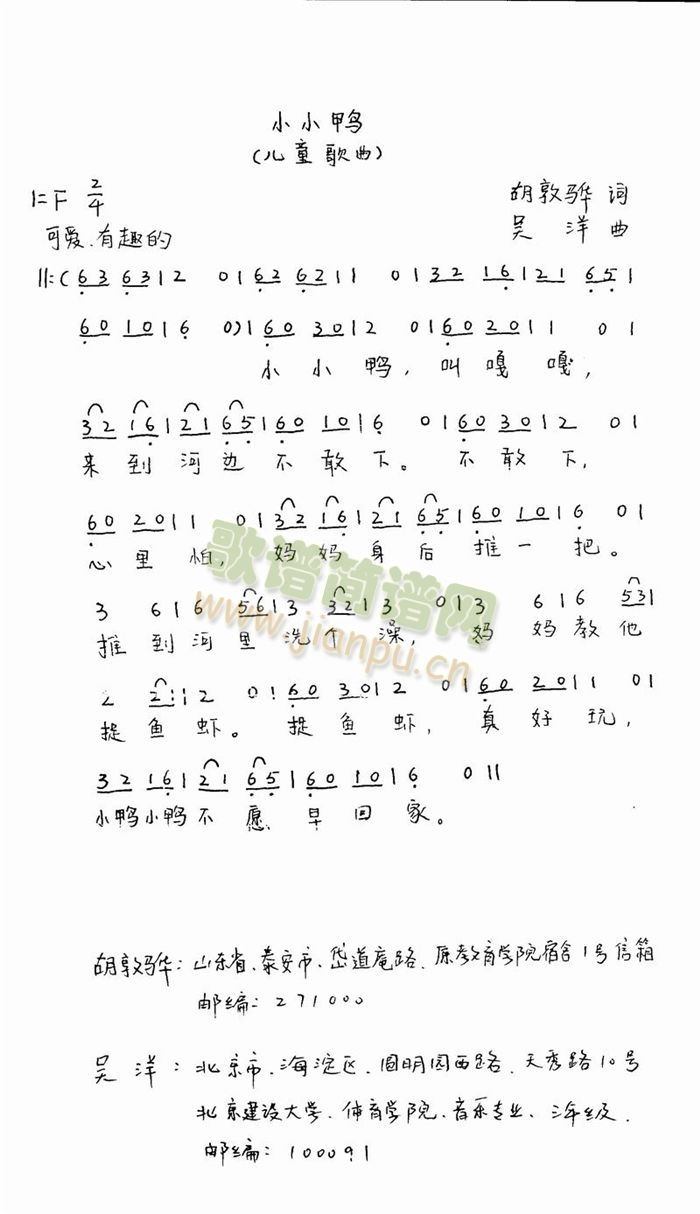 小小鸭
(儿童歌曲)
1=F 2/4
胡敦骅 词
可爱.有趣的
吴 洋 曲
||:( 63 63 | 2 0 | 62 62 | 1 0 | 32 16 | 21 65 |
60 10 | 6 0) | 60 30 | 2 0 | 60 20 | 1 0 |
小 小 鸭, 叫 嘎 嘎,
32 16 | 21 65 | 60 10 | 6 0 | 60 30 | 2 0 |
来 到 河 边 不 敢 下。 不 敢 下,
60 20 | 1 0 | 32 16 | 21 65 | 60 10 | 6 0 |
心 里 怕, 妈 妈 身 后 推 一 把。
3 6 | 6 56 | 3 32 | 3 0 | 3 6 | 6 53 |
推 到 河 里 洗 个 澡, 妈 妈 教 他
2 21 | 2 0 | 60 30 | 2 0 | 60 20 | 1 0 |
捉 鱼 虾。 捉 鱼 虾, 真 好 玩,
32 16 | 21 65 | 60 10 | 6 0 ||
小鸭小鸭不 愿 早 回 家。
歌谱简谱网
www.jianpu.cn
胡敦骅: 山东省、泰安市、岱道庵路、原教育学院宿舍1号信箱
邮编: 271000
吴 洋: 北京市、海淀区、圆明园西路、天秀路10号
北京建设大学、体育学院、音乐专业、三年级.
邮编: 100091